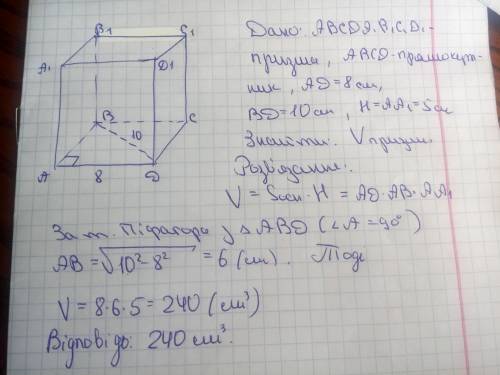 B1 C1
A1 D1
B C
10
A 8 D
Дано: ABCDA1B1C1D1-
призма, ABCD-прямокут-
ник, AD=8см,
BD=10см, H=AA1=5см
Знайти: V призми.
Розв'язання:
V = Sосн·H = AD·AB·AA1
За т. Піфагора у △ABD (∠A=90°)
AB = √10²-8² = 6 (см). Тоді
V = 8·6·5 = 240 (см³)
Відповідь: 240 см³.